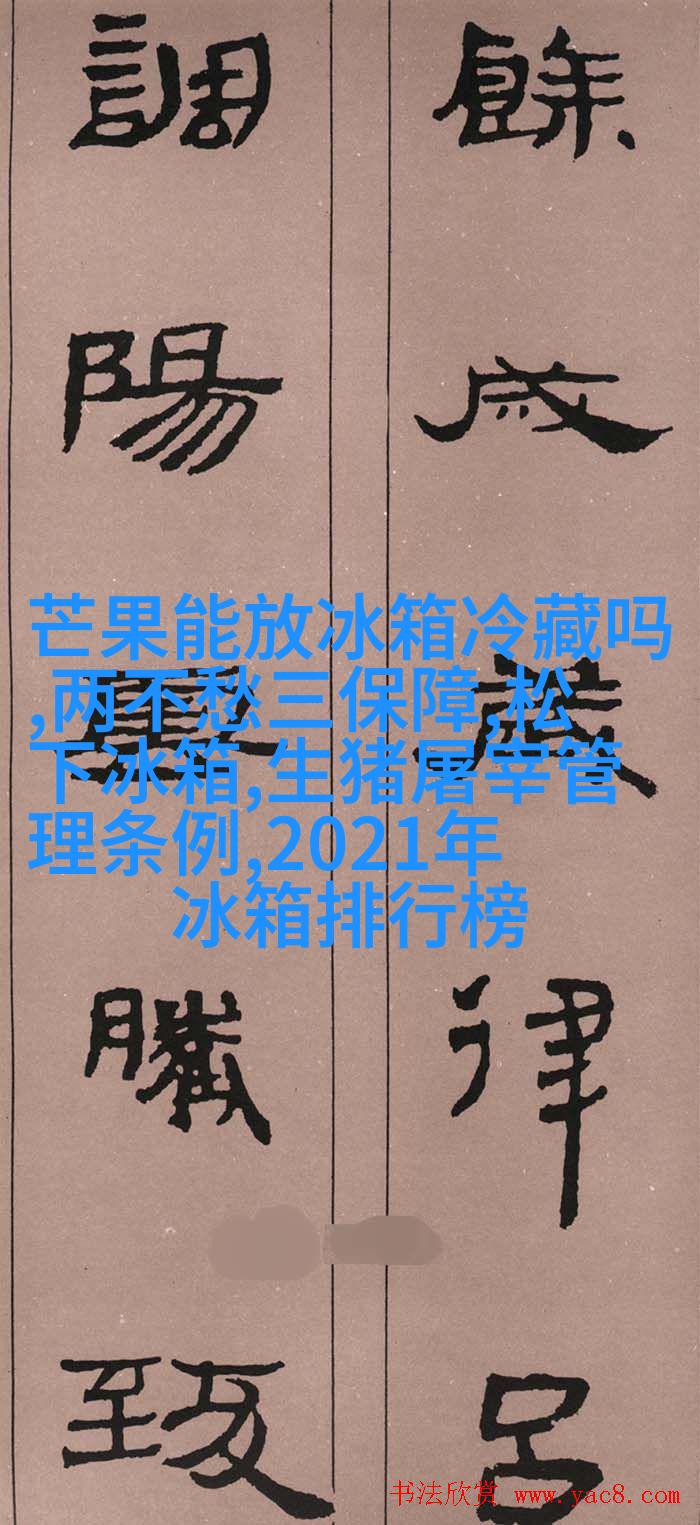 餘成歲律吕
調陽雲騰致
芒果能放冰箱冷藏吗
,两不愁三保障,松
下冰箱,生猪屠宰管
理条例,2021年
冰箱排行榜
书法欣赏 www.yac8.com